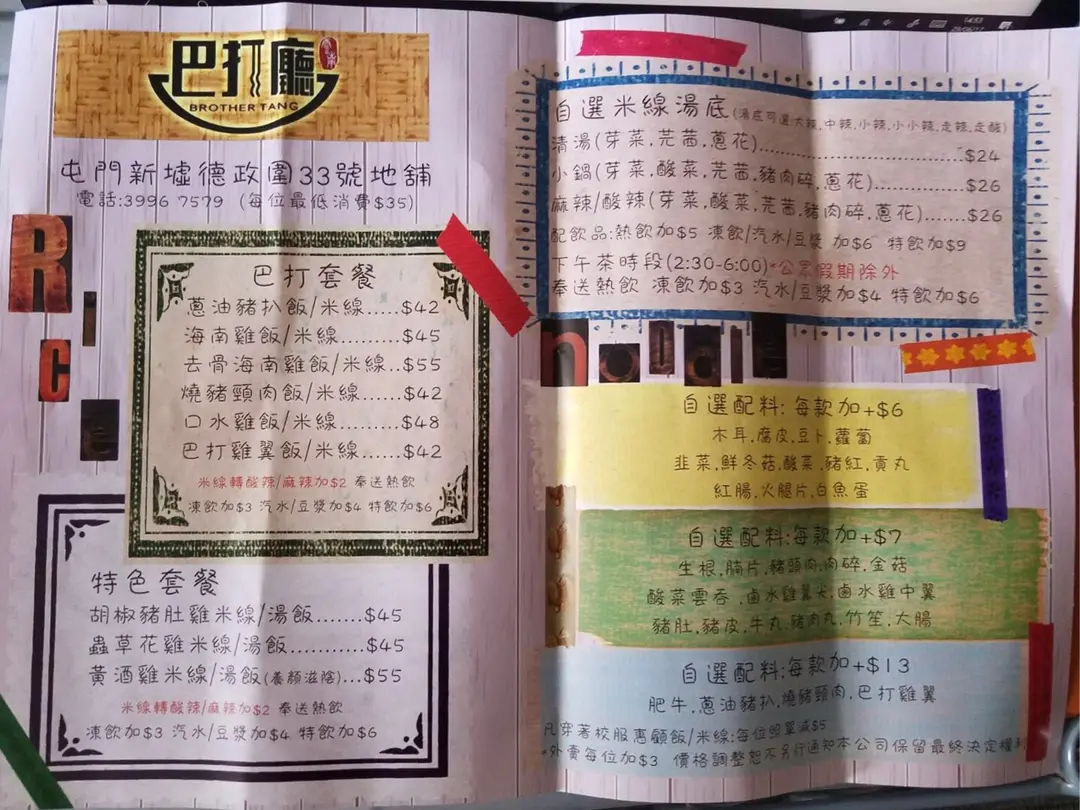 巴打廳
BROTHER TANG
屯門新墟德政圍33號地舖
電話:3996 7579 (每位最低消費$35)
Rice
巴打套餐
蔥油豬扒飯/米線......$42
海南雞飯/米線.........$45
去骨海南雞飯/米線..$55
燒豬頸肉飯/米線......$42
口水雞飯/米線.........$48
巴打雞翼飯/米線......$42
米線轉酸辣/麻辣加$2 奉送熱飲
凍飲加$3 汽水/豆漿加$4 特飲加$6
特色套餐
胡椒豬肚雞米線/湯飯.......$45
蟲草花雞米線/湯飯............$45
黃酒雞米線/湯飯(養顏滋陰)...$55
米線轉酸辣/麻辣加$2 奉送熱飲
凍飲加$3 汽水/豆漿加$4 特飲加$6
自選米線湯底(湯底可選:大辣,中辣,小辣,小小辣,走辣,走酸)
清湯(芽菜,芫茜,蔥花)..............................$24
小鍋(芽菜,酸菜,芫茜,豬肉碎,蔥花).............$26
麻辣/酸辣(芽菜,酸菜,芫茜,豬肉碎,蔥花).......$26
配飲品:熱飲加$5 凍飲/汽水/豆漿 加$6 特飲加$9
下午茶時段(2:30-6:00)*公眾假期除外
奉送熱飲 凍飲加$3 汽水/豆漿加$4 特飲加$6
noodle
自選配料:每款加+$6
木耳,腐皮,豆卜,蘿蔔
韭菜,鮮冬菇,酸菜,豬紅,貢丸
紅腸,火腿片,白魚蛋
自選配料:每款加+$7
生根,腩片,豬頸肉,肉碎,金菇
酸菜雲吞,鹵水雞翼尖,鹵水雞中翼
豬肚,豬皮,牛丸,豬肉丸,竹笙,大腸
自選配料:每款加+$13
肥牛,蔥油豬扒,燒豬頸肉,巴打雞翼
凡穿著校服惠顧飯/米線:每位照單減$5
*外賣每位加$3 價格調整恕不另行通知本公司保留最終決定權利